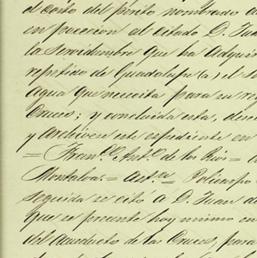 al costo del perito nombrado a
en posecion al citado D. Juan
la Servidumbre que ha adquiri
repitiso de Guadalupe (a) el S
Agua que necesita para su re
Cruces; y concluida esta, dem
y Archivese este espediente en
= Fran.co Ant.o de los Rios =
Montalva = Policarpo
seguida se citó a D. Juan d
que se presente hoy mismo en
del Acueducto de las Cruces, para